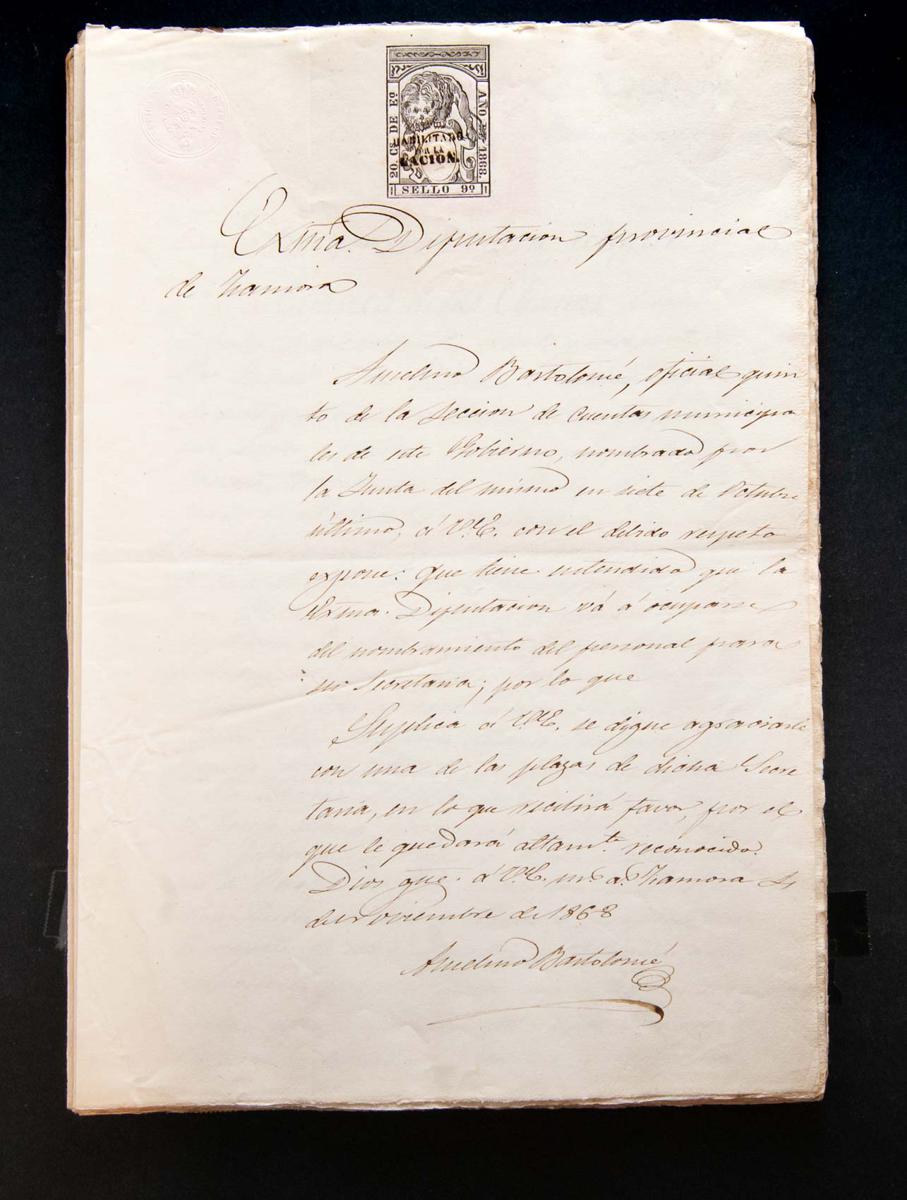 20. Cs. DE Eo.
AÑO 1868.
HABILITADO
POR LA
NACION.
SELLO 9º
Exma. Diputacion provincial
de Zamora
Anselmo Bartolomé, oficial quin
to de la Seccion de Cuentas municipa
les de este Gobierno, nombrado por
la Junta del mismo en siete de Octubre
último, á V.E. con el debido respeto
expone: que tiene entendido que la
Exma. Diputacion vá á ocuparse
del nombramiento del personal para
su Secretaria; por lo que
Suplica á V.E. se digne agraciarle
con una de las plazas de dicha Secre
taria, en lo que recibirá favor, por el
que le quedará altamte. reconocido.
Dios gue. á V.E. ms. as. Zamora
de Noviembre de 1868
Anselmo Bartolomé